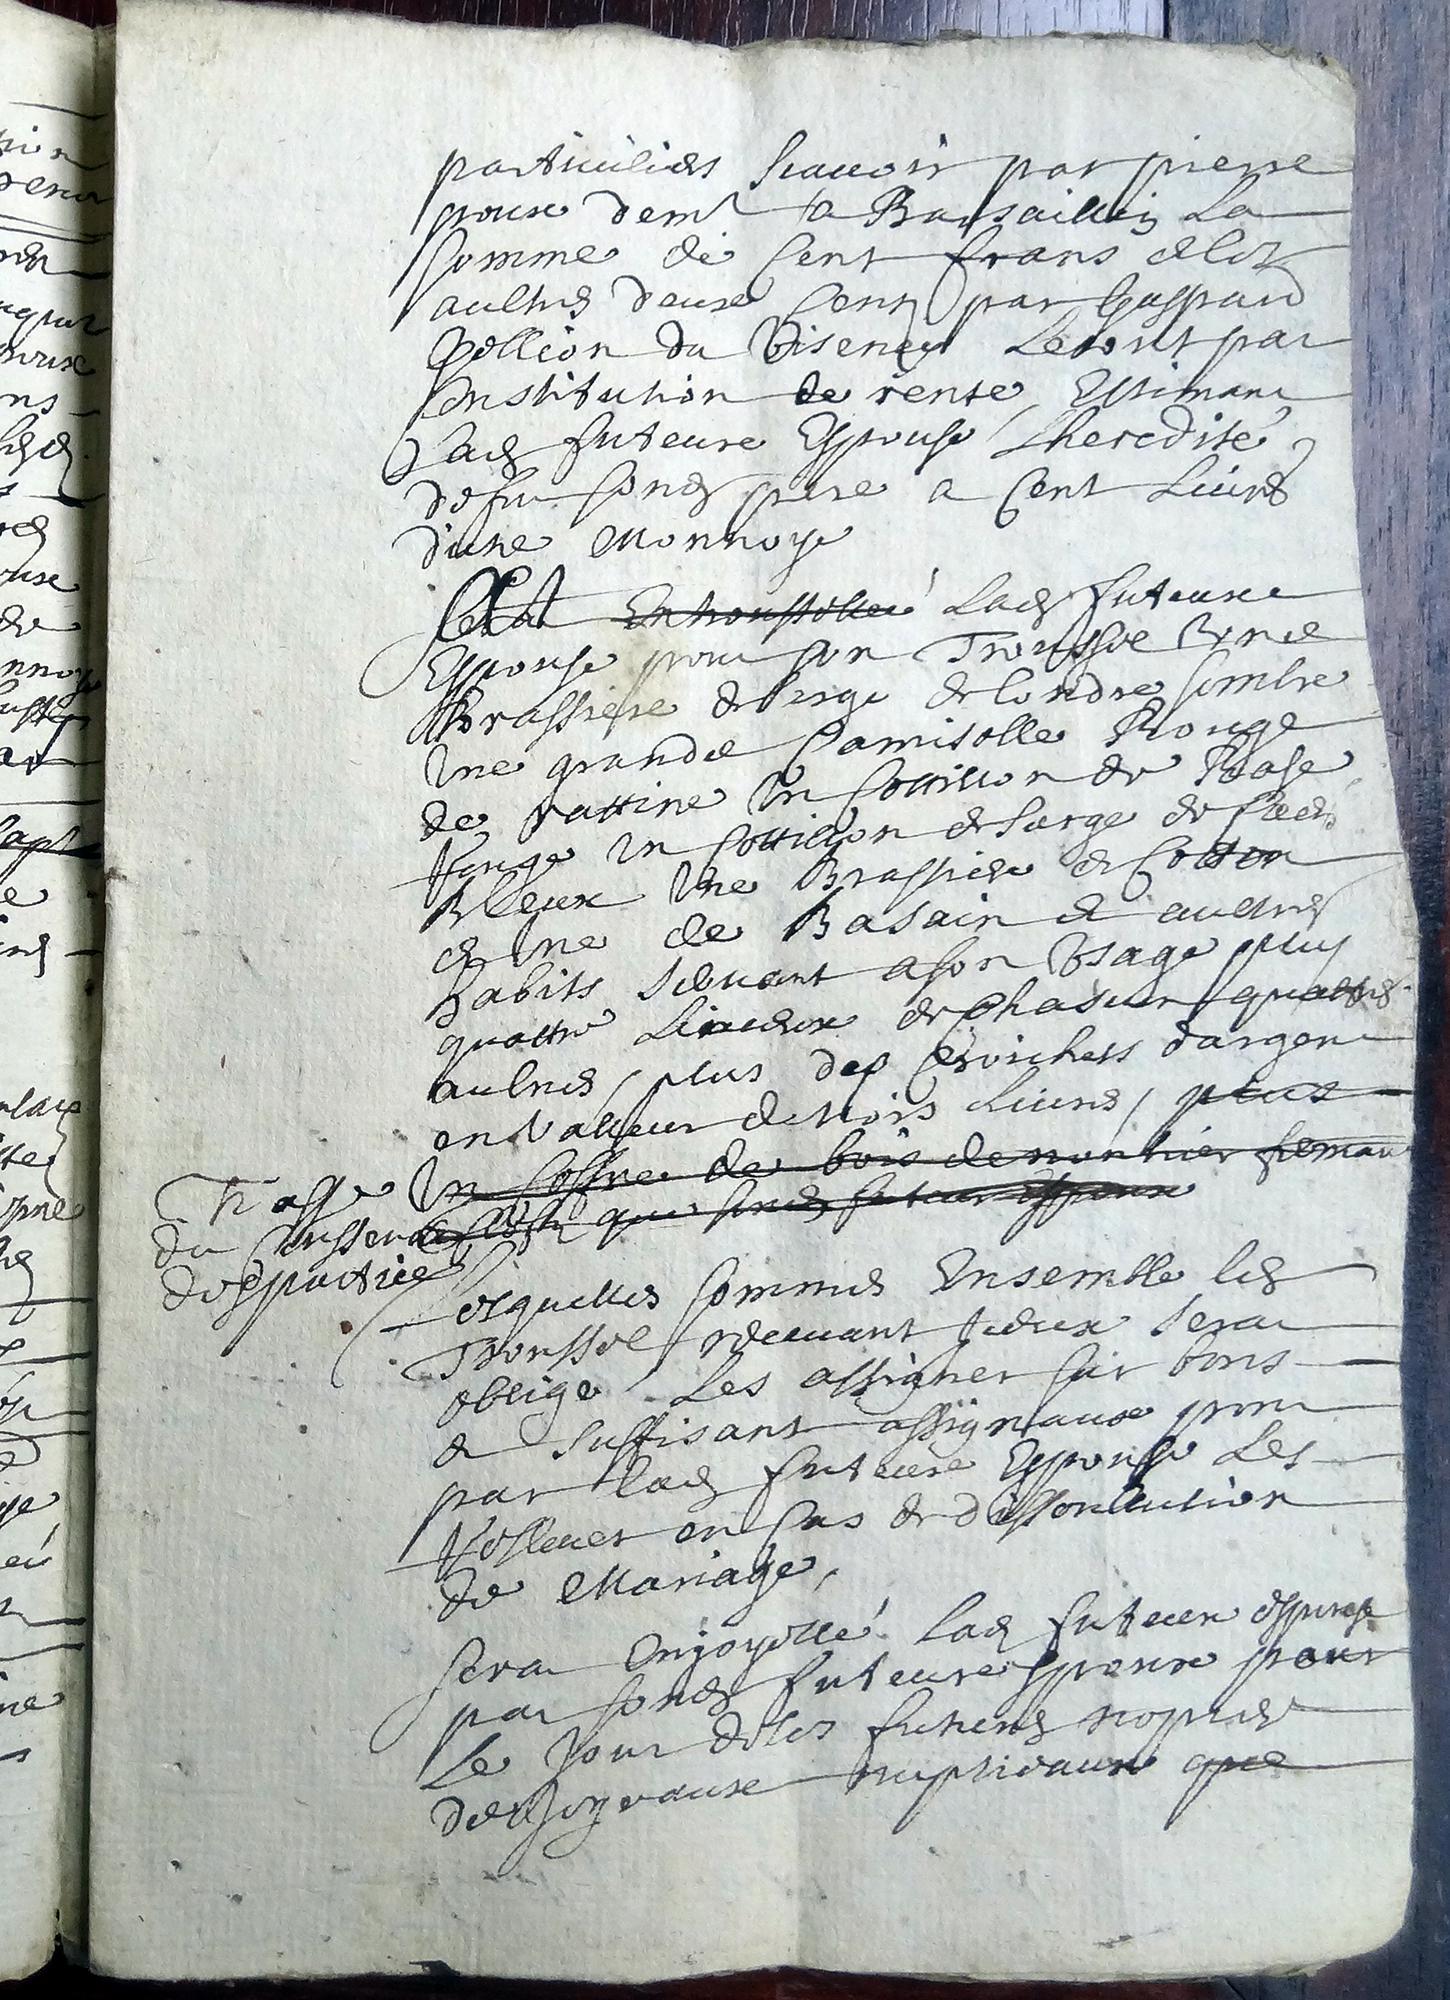 particuliers scavoir par pierre
proux dem^t a Barsaillin La
somme de cent frans et les
aultres deux cens par Gaspard
Gollion du Viseney Le tout par
Constitution de rente, Estimant
lad future Espouse Lheredité
de fut sond pere a cent Livres
dicte Monnoye
Sera Entroussollée Lad future
Espouse pour son Troussel D'une
Brassiere de serge de londre sombre
Une grande Camisolle Rouge
de rattine Un Cottillon de Rase
Rouge Un Cottillon de sarge de
Bleux Une Brassiere de Cotton
et Une de Basain et aultres
habits servant a son Usage plus
quattre Linceux de chascun quattre
aulnes, plus des Crochets dargent
en Valleur de trois Livres, plus
Un Coffre de bois de fermant
a Clefz que sond futur Espoux
du Consentement
des parties
Lesquelles sommes Ensemble led
Troussel recevant Iceux sera
obligé Les assigner sur bons
et suffisant assignaux pour
par lad future Espouse Les
Rellever en Cas de dissollution
de Mariage,
sera Enjoyellée Lad future espouse
par sond future Espoux pour
Le Jour de les futures nopces
de Joyeaux nuptiaux que